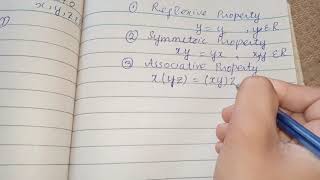 x, y, z,
① Reflexive Property
y = y , y ∈ R
② Symmetric Property
xy = yx , x,y ∈ R
③ Associative Property
x(yz) = (xy)z